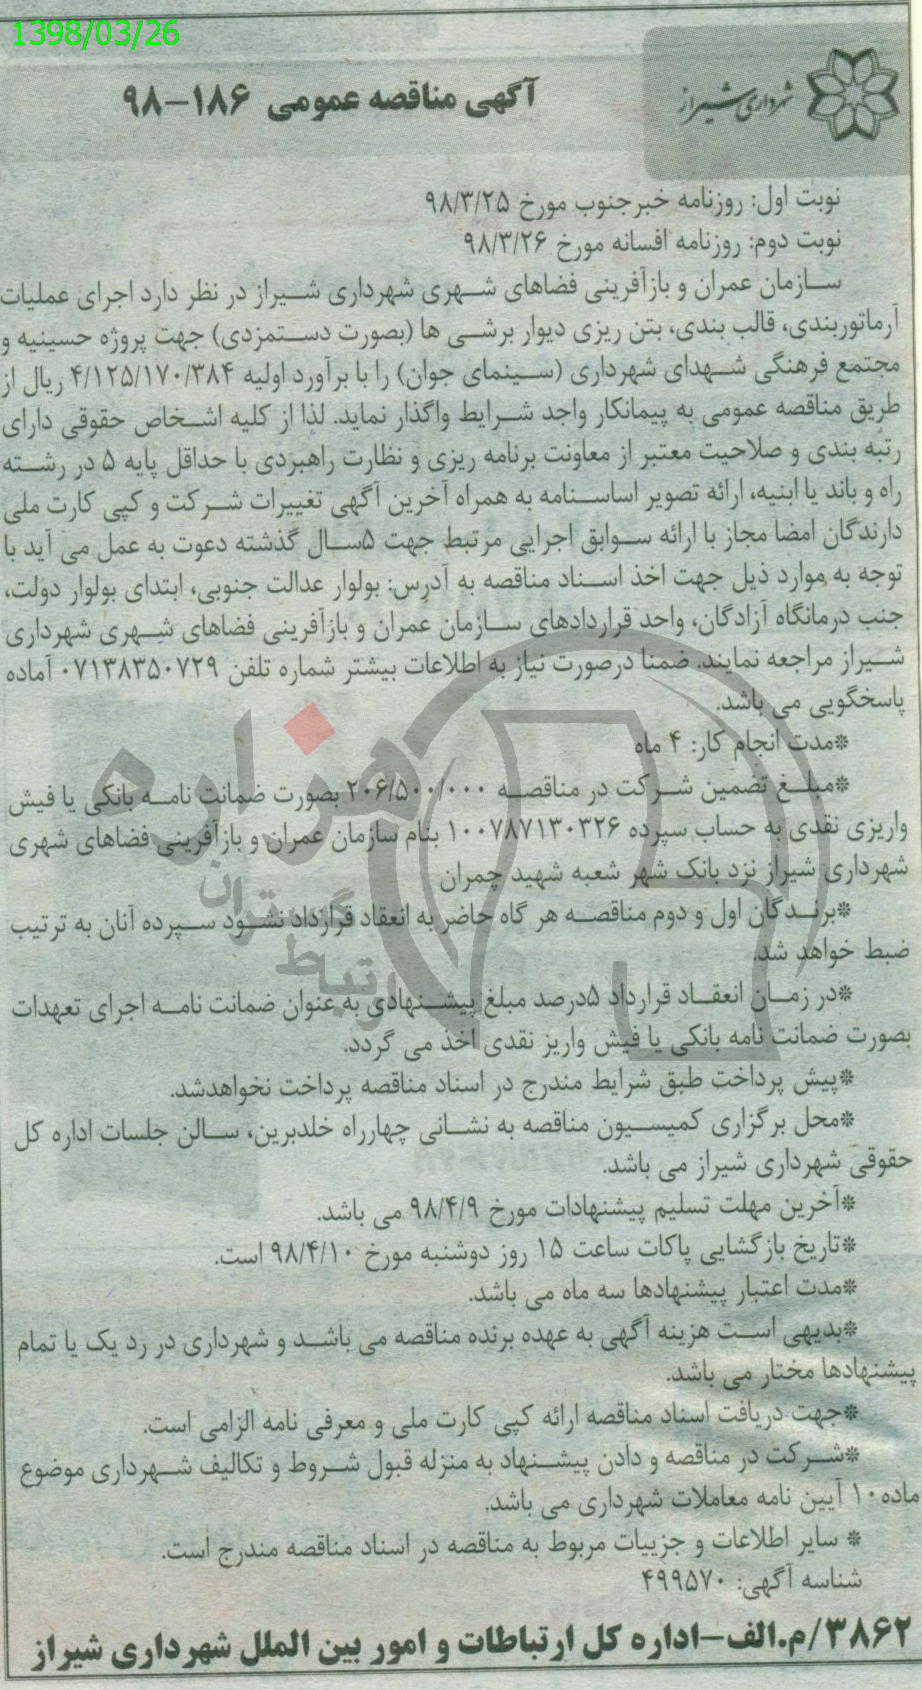 1398/03/26
شهرداری شیراز
آگهی مناقصه عمومی ۱۸۶-۹۸
نوبت اول: روزنامه خبرجنوب مورخ ۹۸/۳/۲۵
نوبت دوم: روزنامه افسانه مورخ ۹۸/۳/۲۶
سازمان عمران و بازآفرینی فضاهای شهری شهرداری شیراز در نظر دارد اجرای عملیات
آرماتوربندی، قالب بندی، بتن ریزی دیوار برشی ها (بصورت دستمزدی) جهت پروژه حسینیه و
مجتمع فرهنگی شهدای شهرداری (سینمای جوان) را با برآورد اولیه ۴/۱۲۵/۱۷۰/۳۸۴ ریال از
طریق مناقصه عمومی به پیمانکار واجد شرایط واگذار نماید. لذا از کلیه اشخاص حقوقی دارای
رتبه بندی و صلاحیت معتبر از معاونت برنامه ریزی و نظارت راهبردی با حداقل پایه ۵ در رشته
راه و باند یا ابنیه، ارائه تصویر اساسنامه به همراه آخرین آگهی تغییرات شرکت و کپی کارت ملی
دارندگان امضا مجاز با ارائه سوابق اجرایی مرتبط جهت ۵سال گذشته دعوت به عمل می آید با
توجه به موارد ذیل جهت اخذ اسناد مناقصه به آدرس: بولوار عدالت جنوبی، ابتدای بولوار دولت،
جنب درمانگاه آزادگان، واحد قراردادهای سازمان عمران و بازآفرینی فضاهای شهری شهرداری
شیراز مراجعه نمایند. ضمنا درصورت نیاز به اطلاعات بیشتر شماره تلفن ۰۷۱۳۸۳۵۰۷۲۹ آماده
پاسخگویی می باشد.
*مدت انجام کار: ۴ ماه
*مبلغ تضمین شرکت در مناقصه ۲۰۶/۵۰۰/۰۰۰ بصورت ضمانت نامه بانکی یا فیش
واریزی نقدی به حساب سپرده ۱۰۰۷۸۷۱۳۰۳۲۶ بنام سازمان عمران و بازآفرینی فضاهای شهری
شهرداری شیراز نزد بانک شهر شعبه شهید چمران
*برندگان اول و دوم مناقصه هر گاه حاضر به انعقاد قرارداد نشود سپرده آنان به ترتیب
ضبط خواهد شد.
*در زمان انعقاد قرارداد ۵درصد مبلغ پیشنهادی به عنوان ضمانت نامه اجرای تعهدات
بصورت ضمانت نامه بانکی یا فیش واریز نقدی اخذ می گردد.
*پیش پرداخت طبق شرایط مندرج در اسناد مناقصه پرداخت نخواهدشد.
*محل برگزاری کمیسیون مناقصه به نشانی چهارراه خلدبرین، سالن جلسات اداره کل
حقوقی شهرداری شیراز می باشد.
*آخرین مهلت تسلیم پیشنهادات مورخ ۹۸/۴/۹ می باشد.
*تاریخ بازگشایی پاکات ساعت ۱۵ روز دوشنبه مورخ ۹۸/۴/۱۰ است.
*مدت اعتبار پیشنهادها سه ماه می باشد.
*بدیهی است هزینه آگهی به عهده برنده مناقصه می باشد و شهرداری در رد یک یا تمام
پیشنهادها مختار می باشد.
*جهت دریافت اسناد مناقصه ارائه کپی کارت ملی و معرفی نامه الزامی است.
*شرکت در مناقصه و دادن پیشنهاد به منزله قبول شروط و تکالیف شهرداری موضوع
ماده۱۰ آیین نامه معاملات شهرداری می باشد.
* سایر اطلاعات و جزییات مربوط به مناقصه در اسناد مناقصه مندرج است.
شناسه آگهی: ۴۹۹۵۷۰
۳۸۶۲/م.الف-اداره کل ارتباطات و امور بین الملل شهرداری شیراز
هزاره
ارتباط
گستران